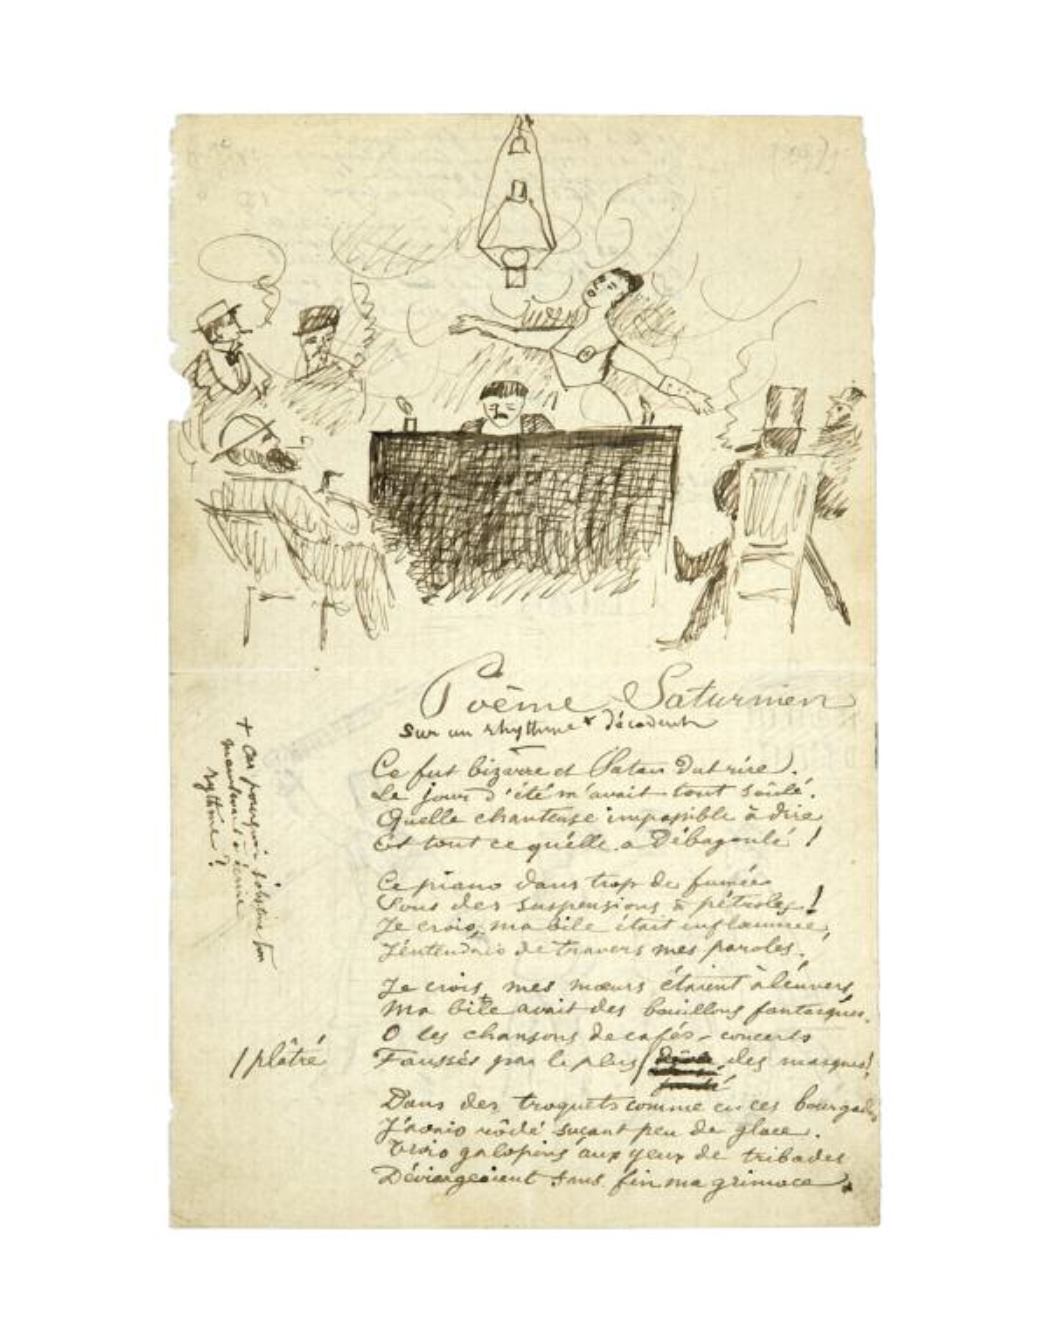 Poème Saturnien
sur un rhythme + décadent
Ce fut bizarre et Satan dut rire.
Le jour d'été m'avait tout soûlé.
Quelle chanteuse impossible à dire
Et tout ce qu'elle a débagoulé !
Ce piano dans trop de fumée
Sous des suspensions à pétroles !
Je crois, ma bile était enflammée,
J'entendais de travers mes paroles.
Je crois, mes mœurs étaient à l'envers,
Ma bile avait des bouillons fantasques.
O les chansons de cafés-concerts
Faussés par le plus / des masques !
Dans des troquets comme en ces bourgades
J'avais rôdé suçant peu de glace.
Trois galopins aux yeux de tribades
Dévisageaient sans fin ma grimace.
+ Car pourquoi s'obstine-t-on
maintenant à écrire
rythme ?
/ plâtré